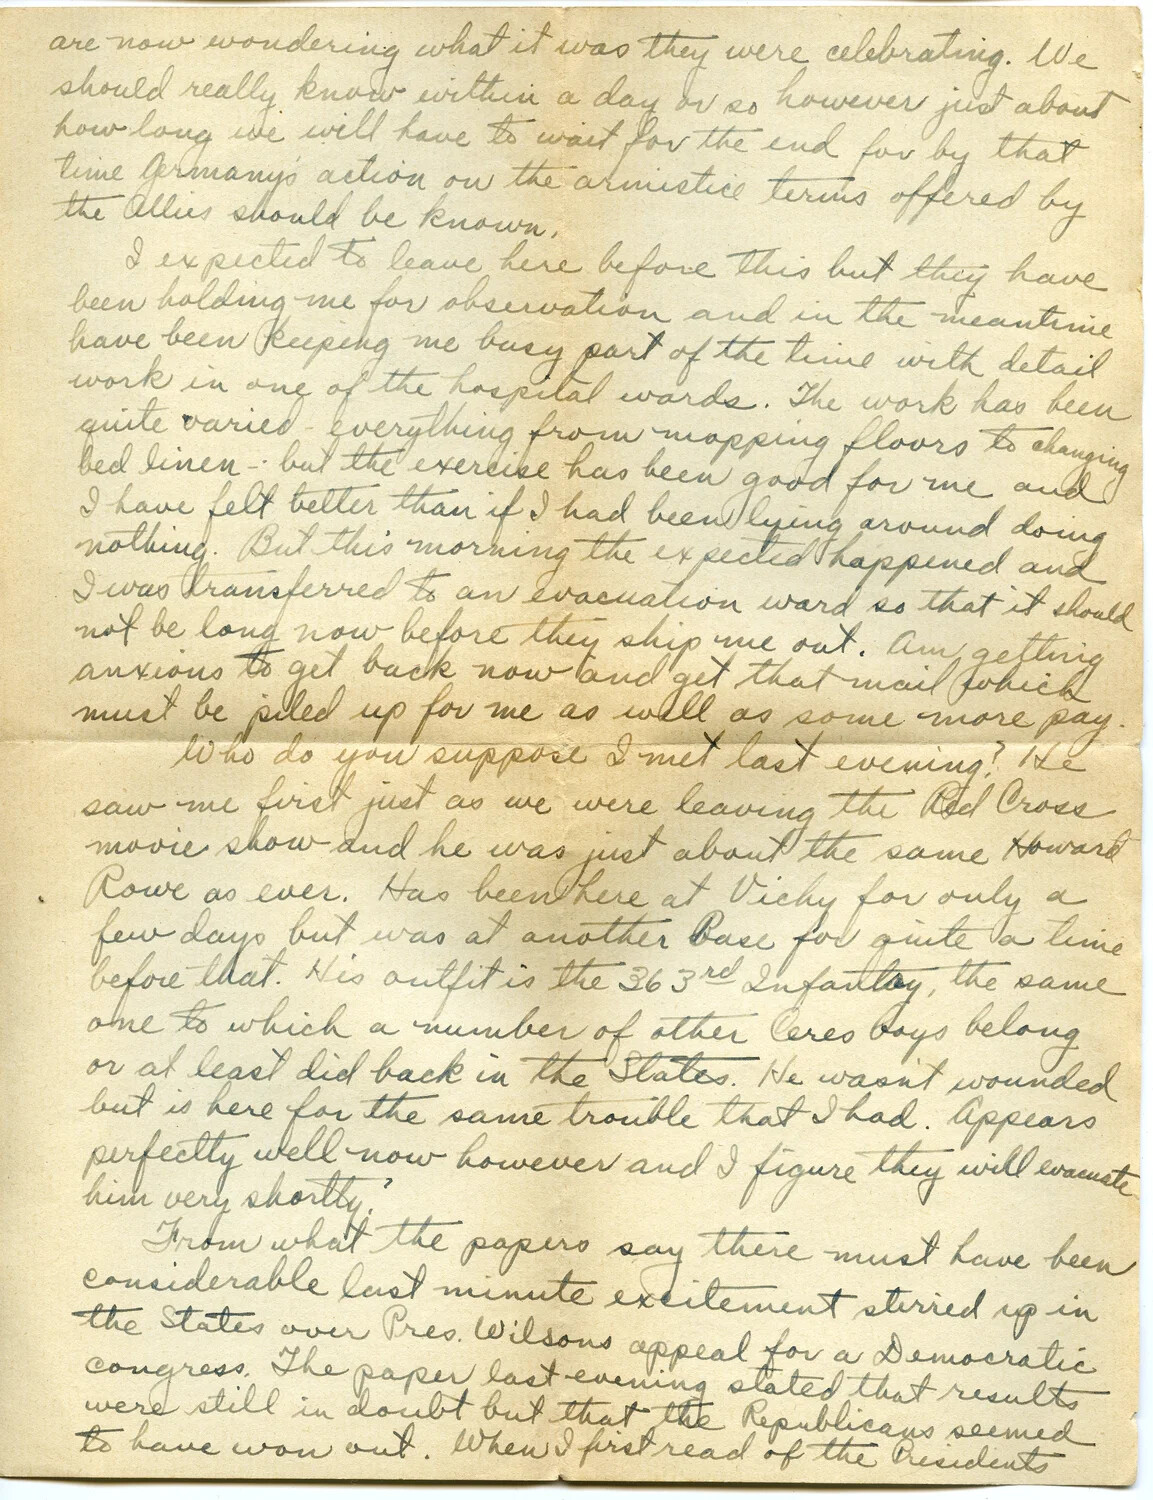 are now wondering what it was they were celebrating. We
should really know within a day or so however just about
how long we will have to wait for the end for by that
time Germany's action on the armistice terms offered by
the Allies should be known.
I expected to leave here before this but they have
been holding me for observation and in the meantime
have been keeping me busy part of the time with detail
work in one of the hospital wards. The work has been
quite varied - everything from mopping floors to changing
bed linen - but the exercise has been good for me and
I have felt better than if I had been lying around doing
nothing. But this morning the expected happened and
I was transferred to an evacuation ward so that it should
not be long now before they ship me out. Am getting
anxious to get back now and get that mail which
must be piled up for me as well as some more pay.
Who do you suppose I met last evening? He
saw me first just as we were leaving the Red Cross
movie show and he was just about the same Howard
Rowe as ever. Has been here at Vichy for only a
few days but was at another Base for quite a time
before that. His outfit is the 363rd Infantry, the same
one to which a number of other Ceres boys belong
or at least did back in the States. He wasn't wounded
but is here for the same trouble that I had. Appears
perfectly well now however and I figure they will evacuate
him very shortly.
From what the papers say there must have been
considerable last minute excitement stirred up in
the States over Pres. Wilsons appeal for a Democratic
congress. The paper last evening stated that results
were still in doubt but that the Republicans seemed
to have won out. When I first read of the Presidents